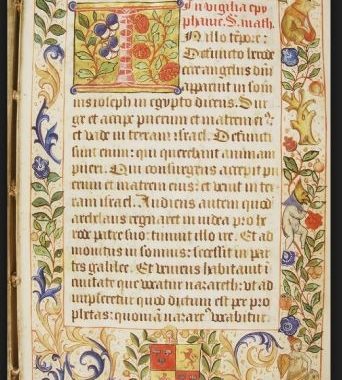 In vigilia epy
phanie. S. math.
In illo tempore:
Defuncto herode
ecce angelus dni
apparuit in som
nis ioseph in egypto dicens. Sur
ge et accipe puerum et matrem eius:
et vade in terram israel. Defuncti
sunt enim: qui querebant animam
pueri. Qui consurgens accepit pu
erum et matrem eius: et venit in ter
ram israel. Audiens autem quod
archelaus regnaret in iudea pro he
rode patre suo: timuit illo ire. Et ad
monitus in somnis: secessit in par
tes galilee. Et veniens habitauit i
ciuitate que vocatur nazareth: vt ad
impleretur quod dictum est per pro
phetas: quoniam nazareus vocabitur.